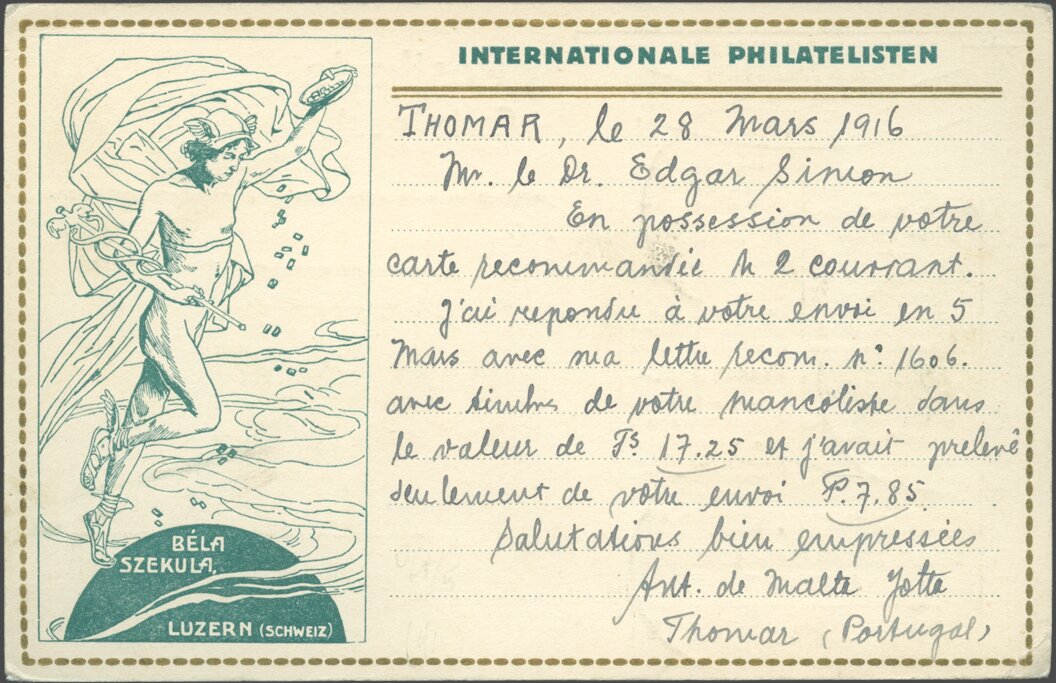 INTERNATIONALE PHILATELISTEN
THOMAR, le 28 Mars 1916
Mr. le Dr. Edgar Simon
En possession de votre
carte recommandée N 2 courrant.
J'ai repondu à votre envoi en 5
Mars avec ma lettre recom. nº 1606.
avec timbres de votre mancoliste dans
le valeur de Fs 17.25 et j'avait prelevé
seulement de votre envoi F. 7.85
Salutations bien empressées
Ant. de Malta
Thomar (Portugal)
BÉLA
SZEKULA,
LUZERN (SCHWEIZ)